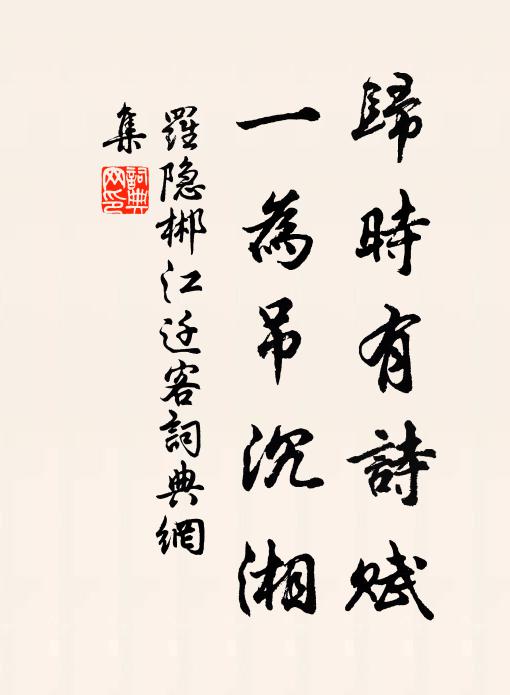 歸時有詩賦
一為吊沉湘
羅隐郴江迁客詞典網
集
詞典网印